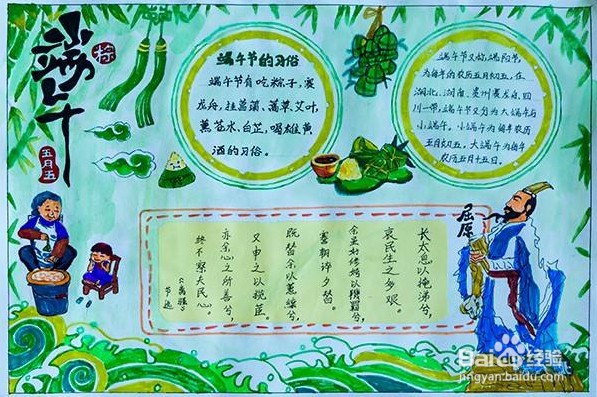 端午
粽
五月五
端午节的习俗
端午节有吃粽子,赛
龙舟,挂菖蒲、蒿草艾叶,
薰苍水,白芷,喝雄黄
酒的习俗。
端午节又称端阳节,
为每年农历五月初五,在
湖北、湖南、贵州
川一带,端午节又分为大端午与
小端午。小端午为每年农历
五月初五,大端午为每年
农历五月十五日。
屈原
长太息以掩涕兮,
哀民生之多艰。
余虽好修姱以鞿羁兮,
謇朝谇夕替。
既替余以蕙纕兮,
又申之以揽茝。
亦余心之所善兮,
终不察夫民心。
《离骚》
节选
Baidu经验
jingyan.baidu.com